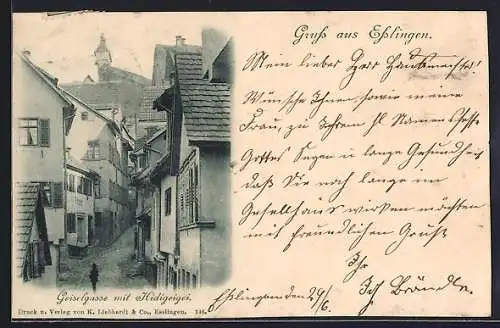 Gruß aus Eßlingen.
Mein lieber Herr
Wünsche Ihnen sowie meine
Frau, zu Ihrem hl Namensfeste
Gottes Segen u lange Gesundheit
daß Sie noch lange im
Gesellhaus wirken möchten
mit freundlichen Gruß
Ihr
Brändle.
Eßlingen den 29/6.
Geiselgasse mit Hidigeigei.
Druck u. Verlag von K. Liebhardt & Co., Esslingen.